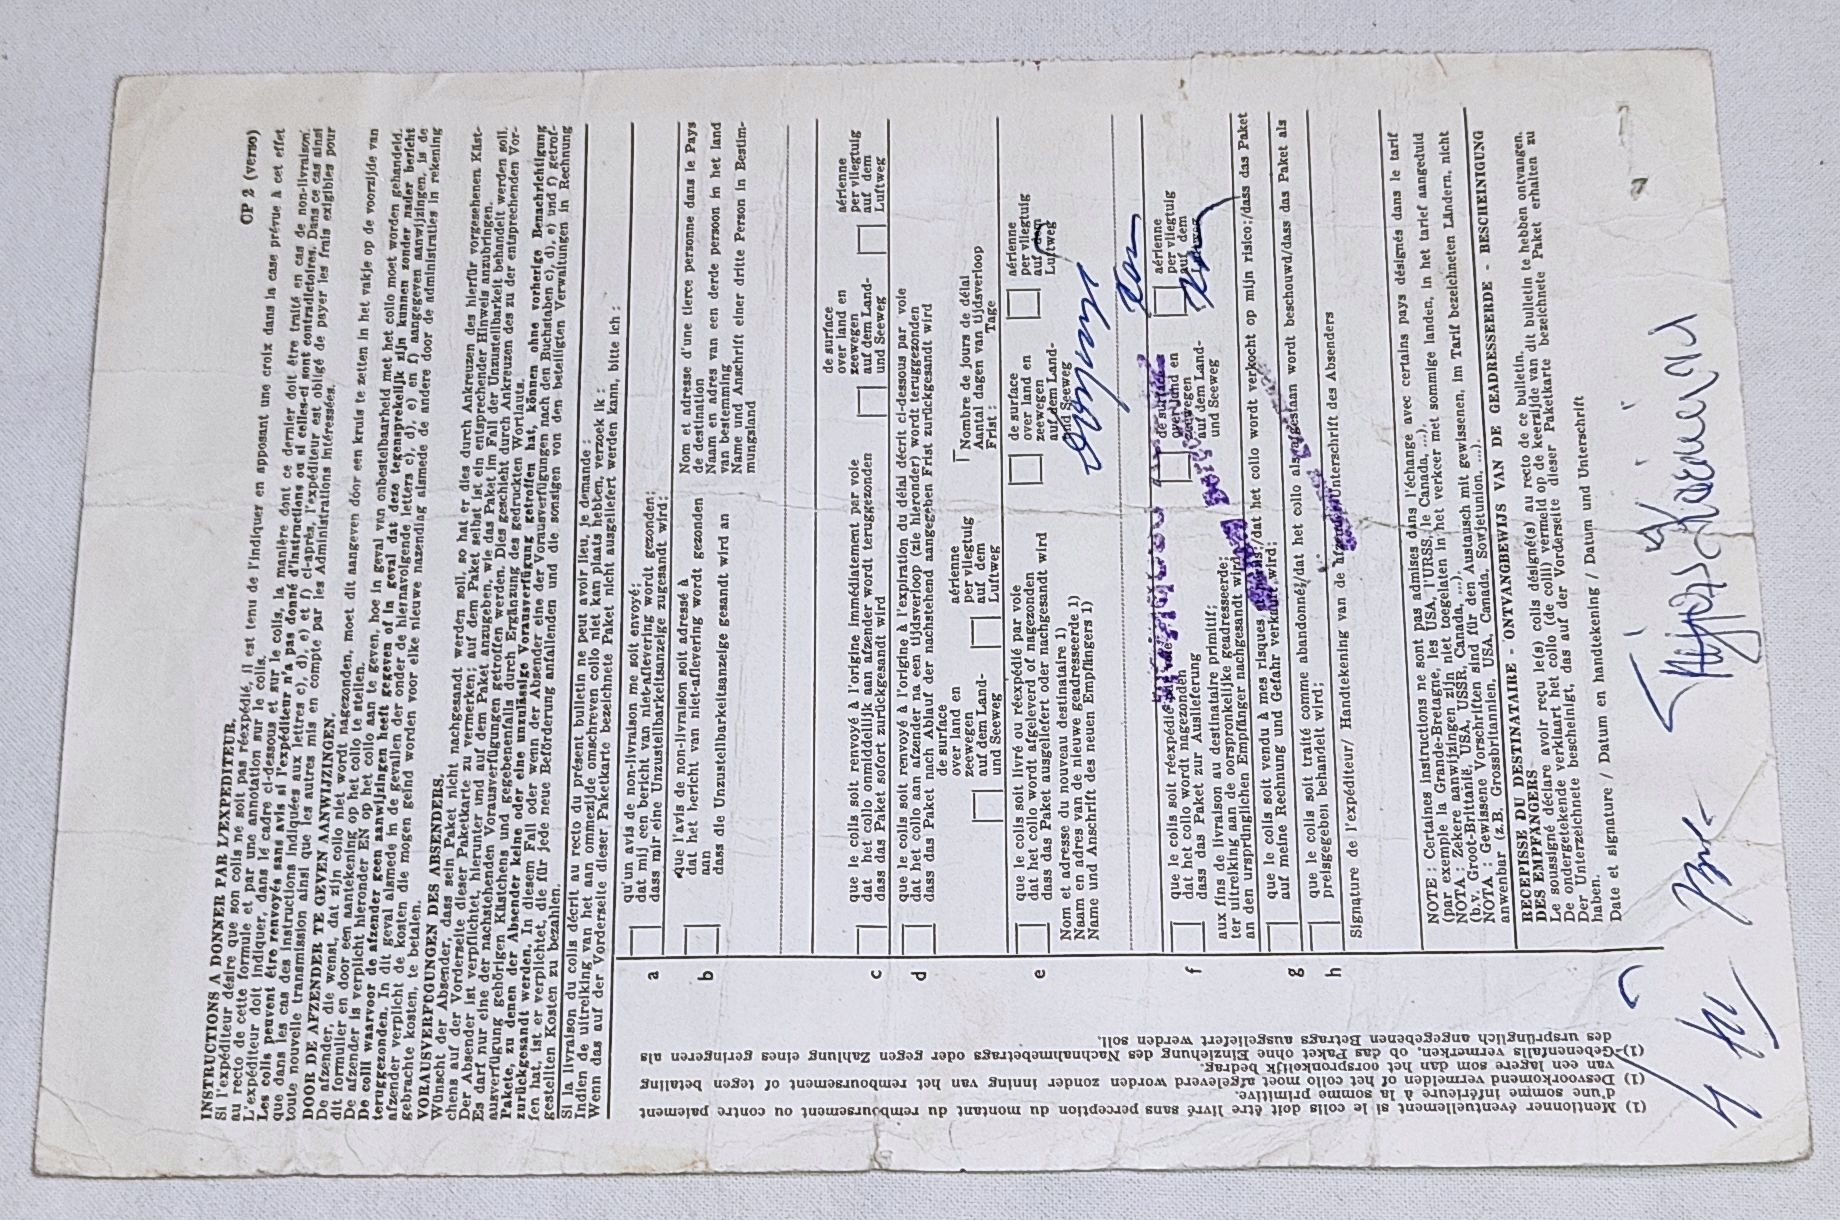 CP 2 (verso)
INSTRUCTIONS A DONNER PAR L'EXPEDITEUR.
Si l'expéditeur désire que son colis ne soit pas réexpédié, il est tenu de l'indiquer en apposant une croix dans la case prévue à cet effet
au recto de cette formule et par une annotation sur le colis.
L'expéditeur doit indiquer, dans le cadre ci-dessous et sur le colis, la manière dont ce dernier doit être traité en cas de non-livraison.
Les colis peuvent être renvoyés sans avis si l'expéditeur n'a pas donné d'instructions ou si celles-ci sont contradictoires. Dans ce cas ainsi
que dans les cas des instructions indiquées aux lettres c), d), e) et f) ci-après, l'expéditeur est obligé de payer les frais exigibles pour
toute nouvelle transmission ainsi que les autres mis en compte par les Administrations intéressées.
DOOR DE AFZENDER TE GEVEN AANWIJZINGEN.
De afzender, die wenst, dat zijn collo niet wordt nagezonden, moet dit aangeven door een kruis te zetten in het vakje op de voorzijde van
dit formulier en door een aantekening op het collo te stellen.
De afzender is verplicht hieronder EN op het collo aan te geven, hoe in geval van onbestelbaarheid met het collo moet worden gehandeld.
De colli waarvoor de afzender geen aanwijzingen heeft gegeven of in geval dat deze tegensprekelijk zijn kunnen zonder nader bericht
teruggezonden. In dit geval alsmede in de gevallen der onder de hiernavolgende letters c), d), e) en f) aangegeven aanwijzingen, is de
afzender verplicht de kosten die mogen geïnd worden voor elke nieuwe nazending alsmede de andere door de administraties in rekening
gebrachte kosten, te betalen.
VORAUSVERFÜGUNGEN DES ABSENDERS.
Wünscht der Absender, dass sein Paket nicht nachgesandt werden soll, so hat er dies durch Ankreuzen des hierfür vorgesehenen Käst-
chens auf der Vorderseite dieser Paketkarte zu vermerken; auf dem Paket selbst ist ein entsprechender Hinweis anzubringen.
Der Absender ist verpflichtet, hierunter und auf dem Paket anzugeben, wie das Paket im Fall der Unzustellbarkeit behandelt werden soll.
Es darf nur eine der nachstehenden Vorausverfügungen getroffen werden. Dies geschieht durch Ankreuzen des zu der entsprechenden Vor-
ausverfügung gehörigen Kästchens und gegebenenfalls durch Ergänzung des gedruckten Wortlauts.
Pakete, zu denen der Absender keine oder eine unzulässige Vorausverfügung getroffen hat, können ohne vorherige Benachrichtigung
zurückgesandt werden. In diesem Fall oder wenn der Absender eine der Vorausverfügungen nach den Buchstaben c), d), e) und f) getrof-
fen hat, ist er verpflichtet, die für jede neue Beförderung anfallenden und die sonsigen von den beteiligten Verwaltungen in Rechnung
gestellten Kosten zu bezahlen.
Si la livraison du colis décrit au recto du présent bulletin ne peut avoir lieu, je demande :
Indien de uitreiking van het aan ommezijde omschreven collo niet kan plaats hebben, verzoek ik :
Wenn das auf der Vorderseite dieser Paketkarte bezeichnete Paket nicht ausgeliefert werden kann, bitte ich :
a
qu'un avis de non-livraison me soit envoyé;
dat mij een bericht van niet-aflevering wordt gezonden;
dass mir eine Unzustellbarkeitsanzeige zugesandt wird;
b
que l'avis de non-livraison soit adressé à
dat het bericht van niet-aflevering wordt gezonden
aan
dass die Unzustellbarkeitsanzeige gesandt wird an
Nom et adresse d'une tierce personne dans le Pays
de destination
Naam en adres van een derde persoon in het land
van bestemming
Name und Anschrift einer dritte Person in Bestim-
mungsland
c
que le colis soit renvoyé à l'origine immédiatement par voie
dat het collo onmiddelijk aan afzender wordt teruggezonden
dass das Paket sofort zurückgesandt wird
de surface
over land en
zeewegen
auf dem Land-
und Seeweg
aérienne
per vliegtuig
auf dem
Luftweg
d
que le colis soit renvoyé à l'origine à l'expiration du délai décrit ci-dessous par voie
dat het collo aan afzender na een tijdsverloop (zie hieronder) wordt teruggezonden
dass das Paket nach Ablauf der nachstehend aangegeben Frist zurückgesandt wird
de surface
over land en
zeewegen
auf dem Land-
und Seeweg
aérienne
per vliegtuig
auf dem
Luftweg
Nombre de jours de délai
Aantal dagen van tijdsverloop
Frist : Tage
e
que le colis soit livré ou réexpédié par voie
dat het collo wordt afgeleverd of nagezonden
dass das Paket ausgeliefert oder nachgesandt wird
de surface
over land en
zeewegen
auf dem Land-
und Seeweg
aérienne
per vliegtuig
auf dem
Luftweg
Nom et adresse du nouveau destinataire 1)
Naam en adres van de nieuwe geadresseerde 1)
Name und Anschrift des neuen Empfängers 1)
f
que le colis soit réexpédié par voie
dat het collo wordt nagezonden
dass das Paket zur Auslieferung
de surface
over land en
zeewegen
auf dem Land-
und Seeweg
aérienne
per vliegtuig
auf dem
Luftweg
aux fins de livraison au destinataire primitif;
ter uitreiking aan de oorspronkelijke geadresseerde;
an den ursprünglichen Empfänger nachgesandt wird;
g
que le colis soit vendu à mes risques et périls;/dat het collo wordt verkocht op mijn risico;/dass das Paket
auf meine Rechnung und Gefahr verkauft wird;
h
que le colis soit traité comme abandonné;/dat het collo als afgestaan wordt beschouwd/dass das Paket als
preisgegeben behandelt wird;
Signature de l'expéditeur/ Handtekening van de afzender/Unterschrift des Absenders
NOTE : Certaines instructions ne sont pas admises dans l'échange avec certains pays désignés dans le tarif
(par exemple la Grande-Bretagne, les USA, l'URSS, le Canada, ...).
NOTA : Zekere aanwijzingen zijn niet toegelaten in het verkeer met sommige landen, in het tarief aangeduid
(b.v. Groot-Brittanië, USA, USSR, Canada, ...).
NOTA : Gewissene Vorschriften sind für den Austausch mit gewissenen, im Tarif bezeichneten Ländern, nicht
anwenbar (z.B. Grossbritannien, USA, Canada, Sowjetunion, ...).
RECEPISSE DU DESTINATAIRE - ONTVANGBEWIJS VAN DE GEADRESSEERDE - BESCHEINIGUNG
DES EMPFÄNGERS
Le soussigné déclare avoir reçu le(s) colis désigné(s) au recto de ce bulletin.
De ondergetekende verklaart het collo (de colli) vermeld op de keerzijde van dit bulletin te hebben ontvangen.
Der Unterzeichnete bescheinigt, das auf der Vorderseite dieser Paketkarte bezeichnete Paket erhalten zu
haben.
Date et signature / Datum en handtekening / Datum und Unterschrift
(1) Mentionner éventuellement si le colis doit être livré sans perception du montant du remboursement ou contre paiement
d'une somme inférieure à la somme primitive.
(1) Desvoorkomend vermelden of het collo moet afgeleverd worden zonder inning van het remboursement of tegen betaling
van een lagere som dan het oorspronkelijk bedrag.
(1) Gebenenfalls vermerken, ob das Paket ohne Einziehung des Nachnahmebetrags oder gegen Zahlung eines geringeren als
des ursprünglich angegebenen Betrags ausgeliefert werden soll.